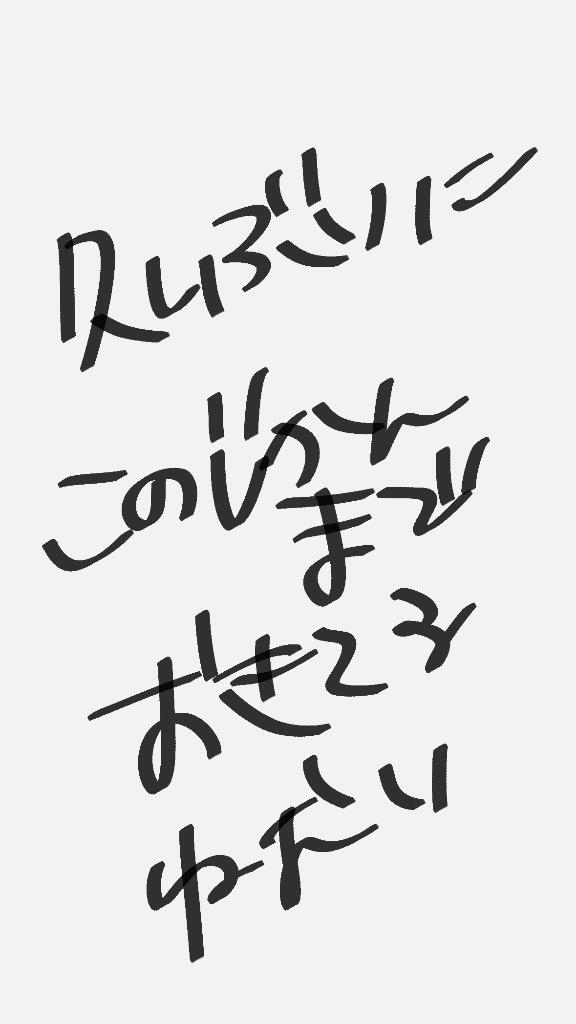 久しぶりに
このじかん
まで
おきてる
ゆだい